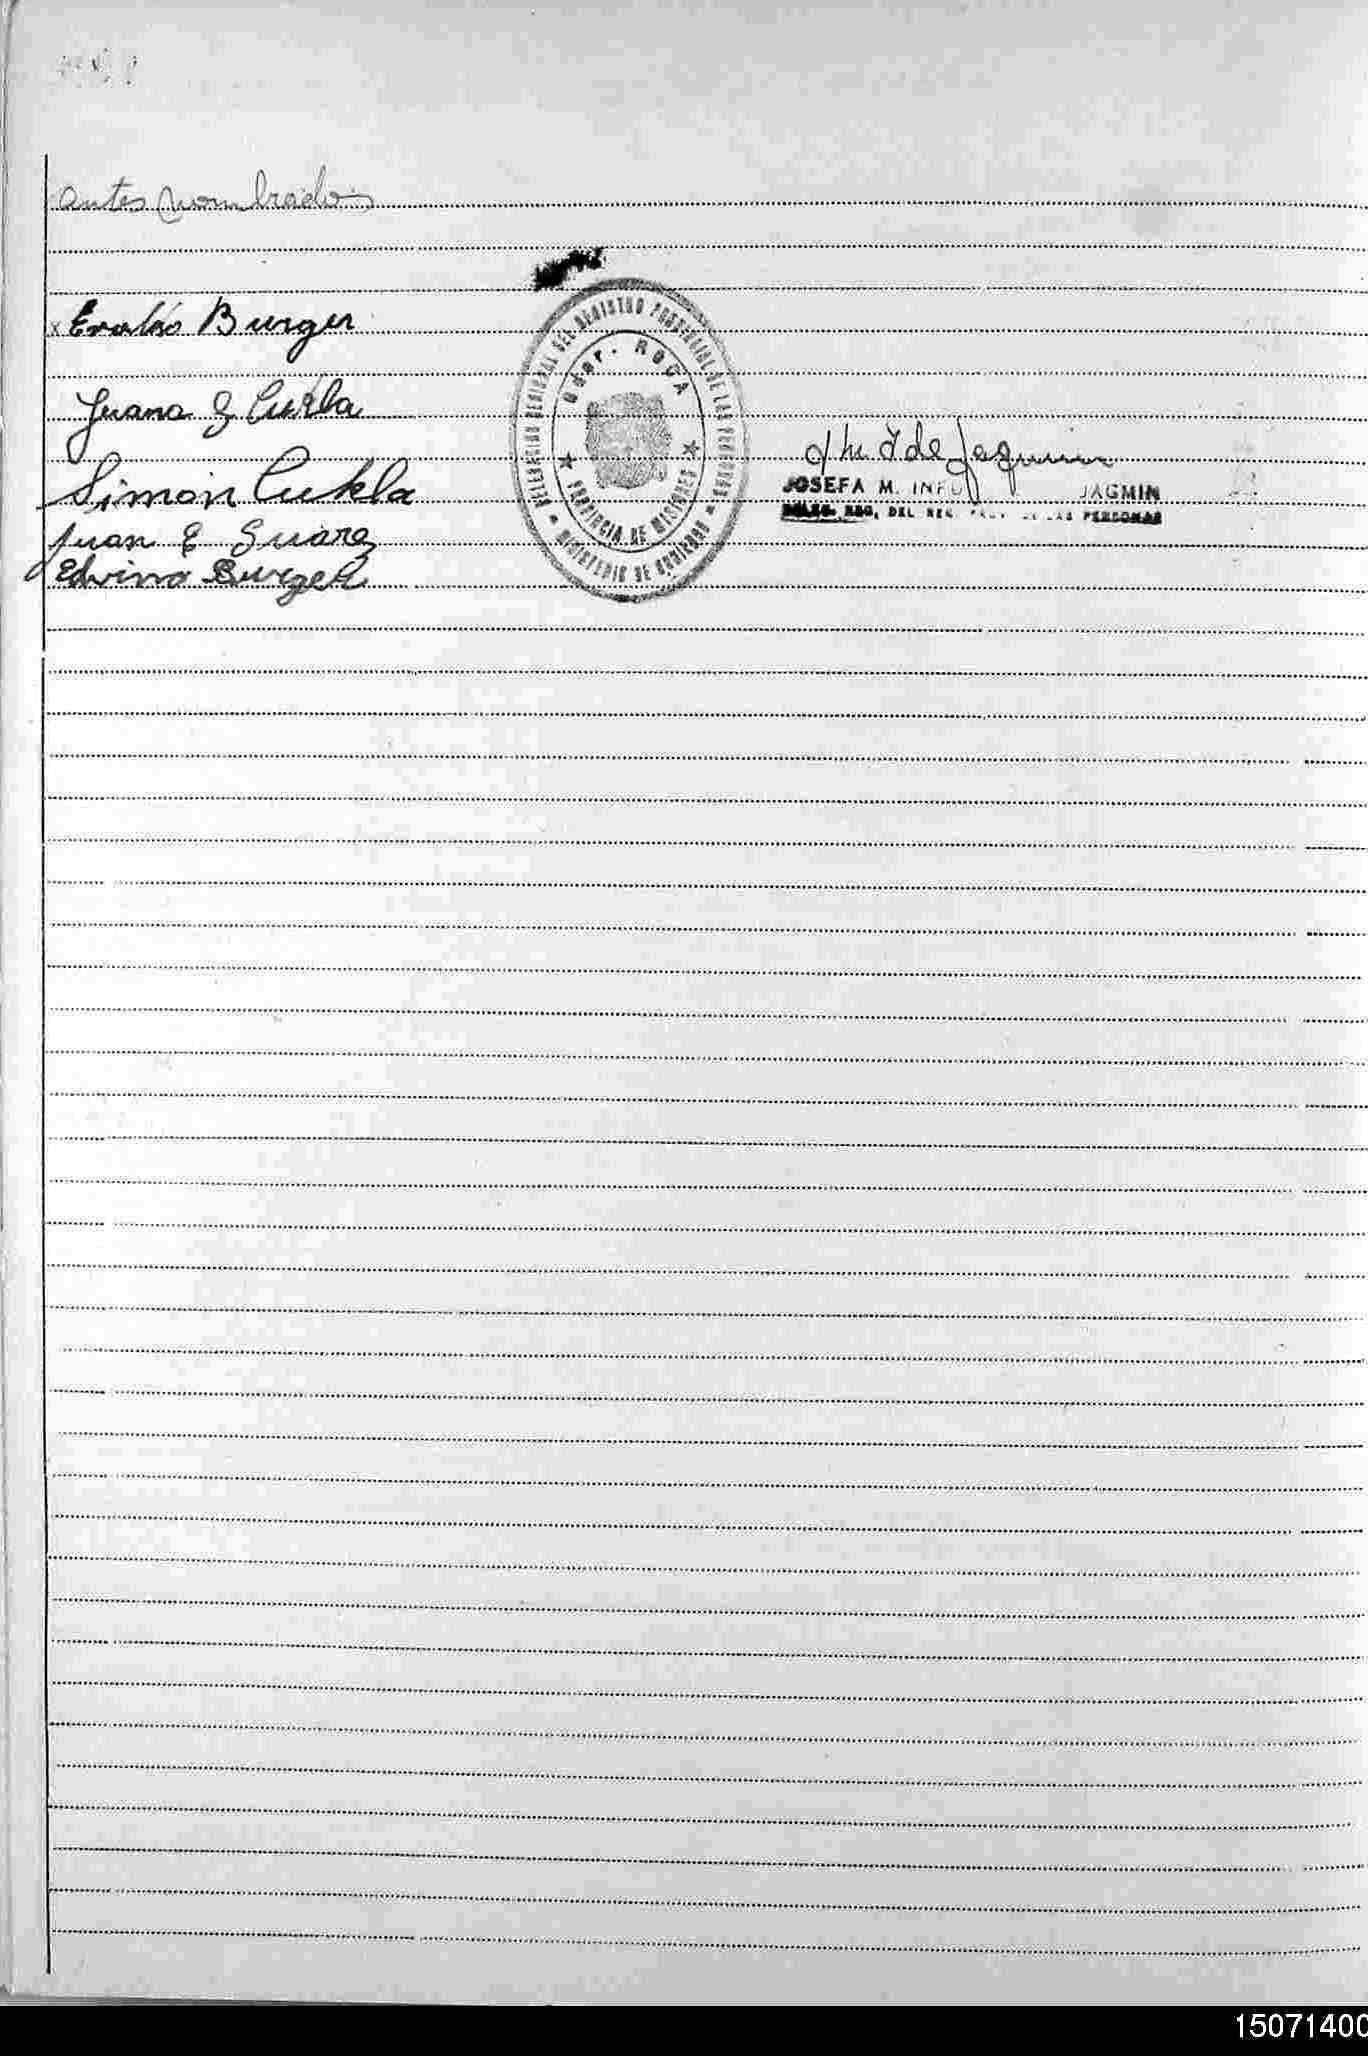 antes nombrados
Juana Cukla
Simón Cukla
Juan E Suárez
Edvino Burger
Burger
DELEGACION REGIONAL DEL REGISTRO PROVINCIAL DE LAS PERSONAS
Gdor. ROCA
PROVINCIA DE MISIONES
MINISTERIO DE GOBIERNO
de Jagmin
JOSEFA M. JAGMIN
DELEG. REG. DEL REG. PROV. DE LAS PERSONAS
15071400